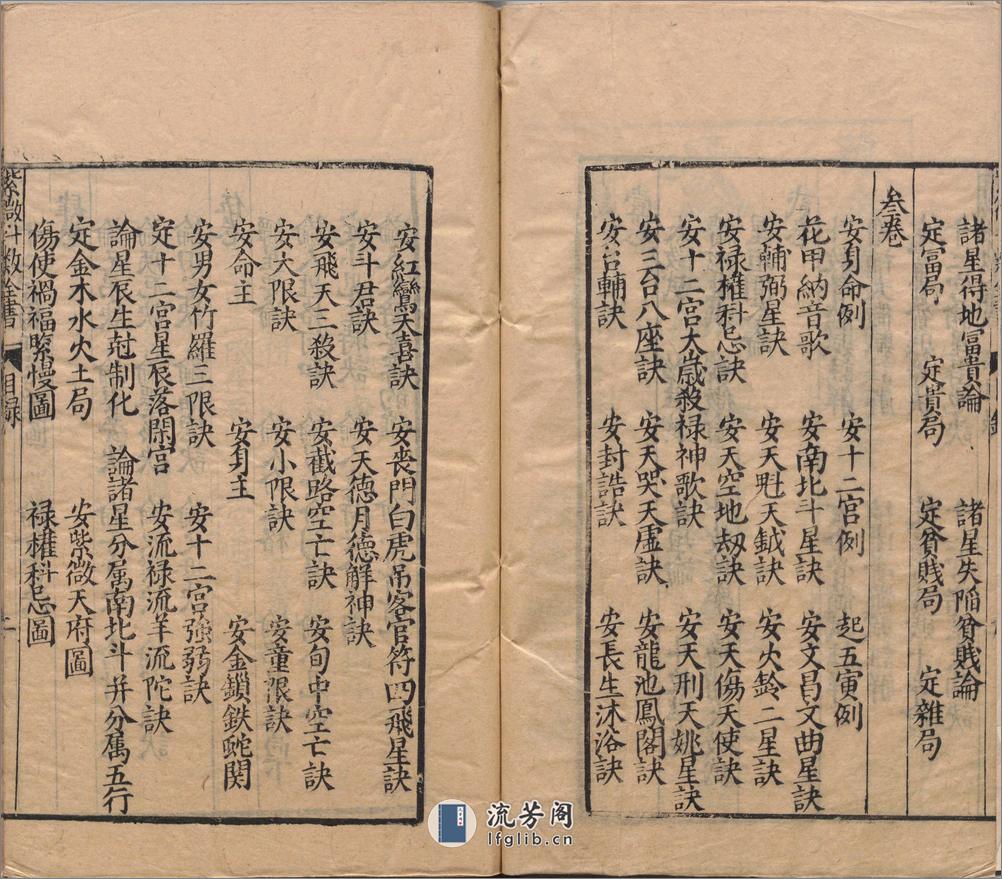 諸星得地富貴論 諸星失陷貧賤論
定富局 定貴局 定貧賤局 定雜局
叁卷
安身命例 安十二宮例 起五寅例
花甲納音歌 安南北斗星訣 安文昌文曲星訣
安輔弼星訣 安天魁天鉞訣 安火鈴二星訣
安禄權科忌訣 安天空地刼訣 安天傷天使訣
安十二宮太歳殺禄神歌訣 安天刑天姚星訣
安三台八座訣 安天哭天虛訣 安龍池鳳閣訣
安台輔訣 安封誥訣 安長生沐浴訣
安紅鸞天喜訣 安喪門白虎吊客官符四飛星訣
安斗君訣 安天德月德解神訣
安飛天三殺訣 安截路空亡訣 安旬中空亡訣
安大限訣 安小限訣 安童限訣
安命主 安身主 安金鎖鉄蛇関
安男女竹羅三限訣 安十二宮強弱訣
定十二宮星辰落閑宮 安流禄流羊流陀訣
論星辰生尅制化 論諸星分属南北斗并分属五行
定金木水火土局 安紫微天府圖
傷使禍福緊慢圖 禄權科忌圖
紫微斗數全書 目録 二
流芳阁
lfglib.cn